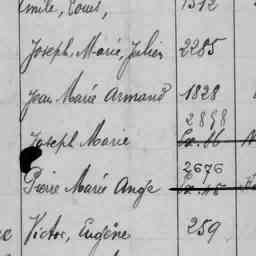 Emile, Louis, 1312
Joseph, Marie, Julien 2285
Jean Marie Armand 1828
2898
Joseph Marie
2676
Pierre Marie Ange
Victor, Eugène 259